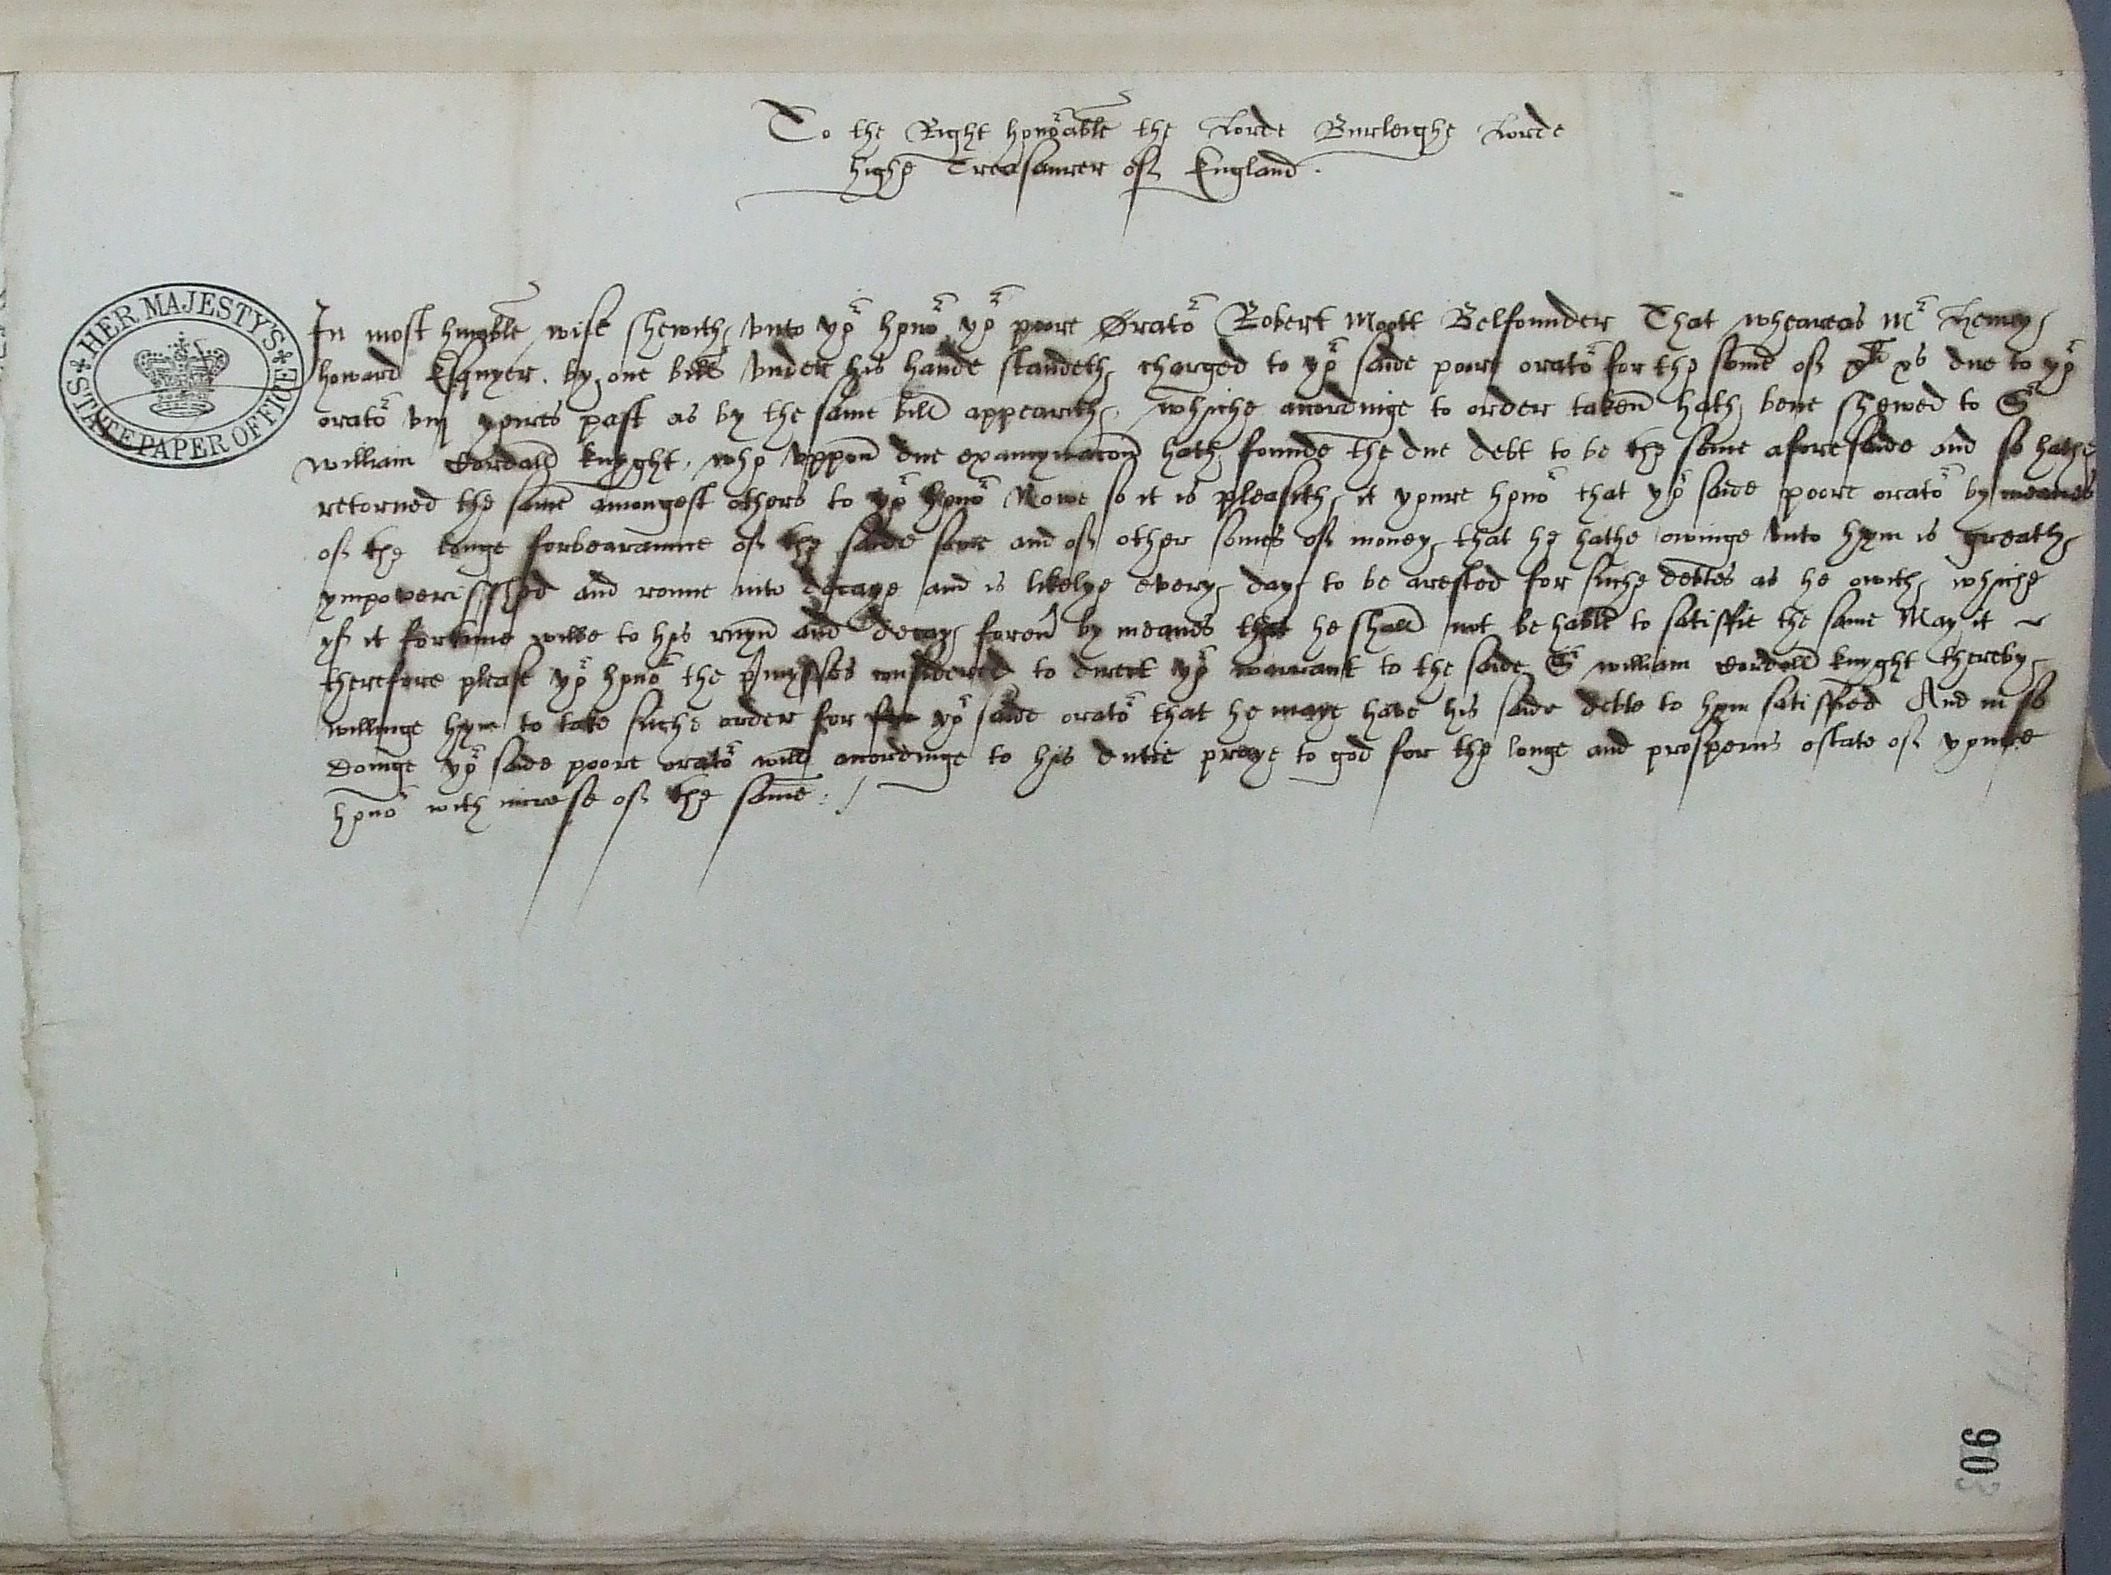 To the Right honorable the Lorde Burleighe Lorde
highe Treasaurer of England.
HER MAJESTY'S
STATE PAPER OFFICE
In most humble wise shewith unto yor honor yor poore Orator Robert Moott Belfounder That wheareas Mr Henry
howard Esquyer by one bill under his hande standeth charged to yor saide poore orator for the some of xli xs due to yor
orator viij yeares past as by the same bill appearith, whiche accordinge to order taken hath bene shewed to Sr
william Cordall knyght, who uppon due examynacon hath founde the due debt to be the some aforesaide and so hathe
retorned the same amongest others to yor honor Nowe so it is pleasith it youre honor that yor saide poore orator by meanes
of the longe forbearaunce of the saide some and of other somes of money that he hathe owinge unto hym is greatly
ympoverisshed and ronne into decaye and is likelye every day to be arested for suche debtes as he owith, whiche
yf it fortune wilbe to his ruyn and decay forever by meanes that he shall not be hable to satisfie the same May it
therefore please yor honor the premysses considered to direct yor warrant to the saide Sr william Cordall knyght thereby
willinge hym to take suche order for yor saide orator that he maye have his saide debte to hym satisfied And in so
doinge yor saide poore orator will accordinge to his dutie praye to god for the longe and prosperus estate of youre
honor with increse of the same:/
90